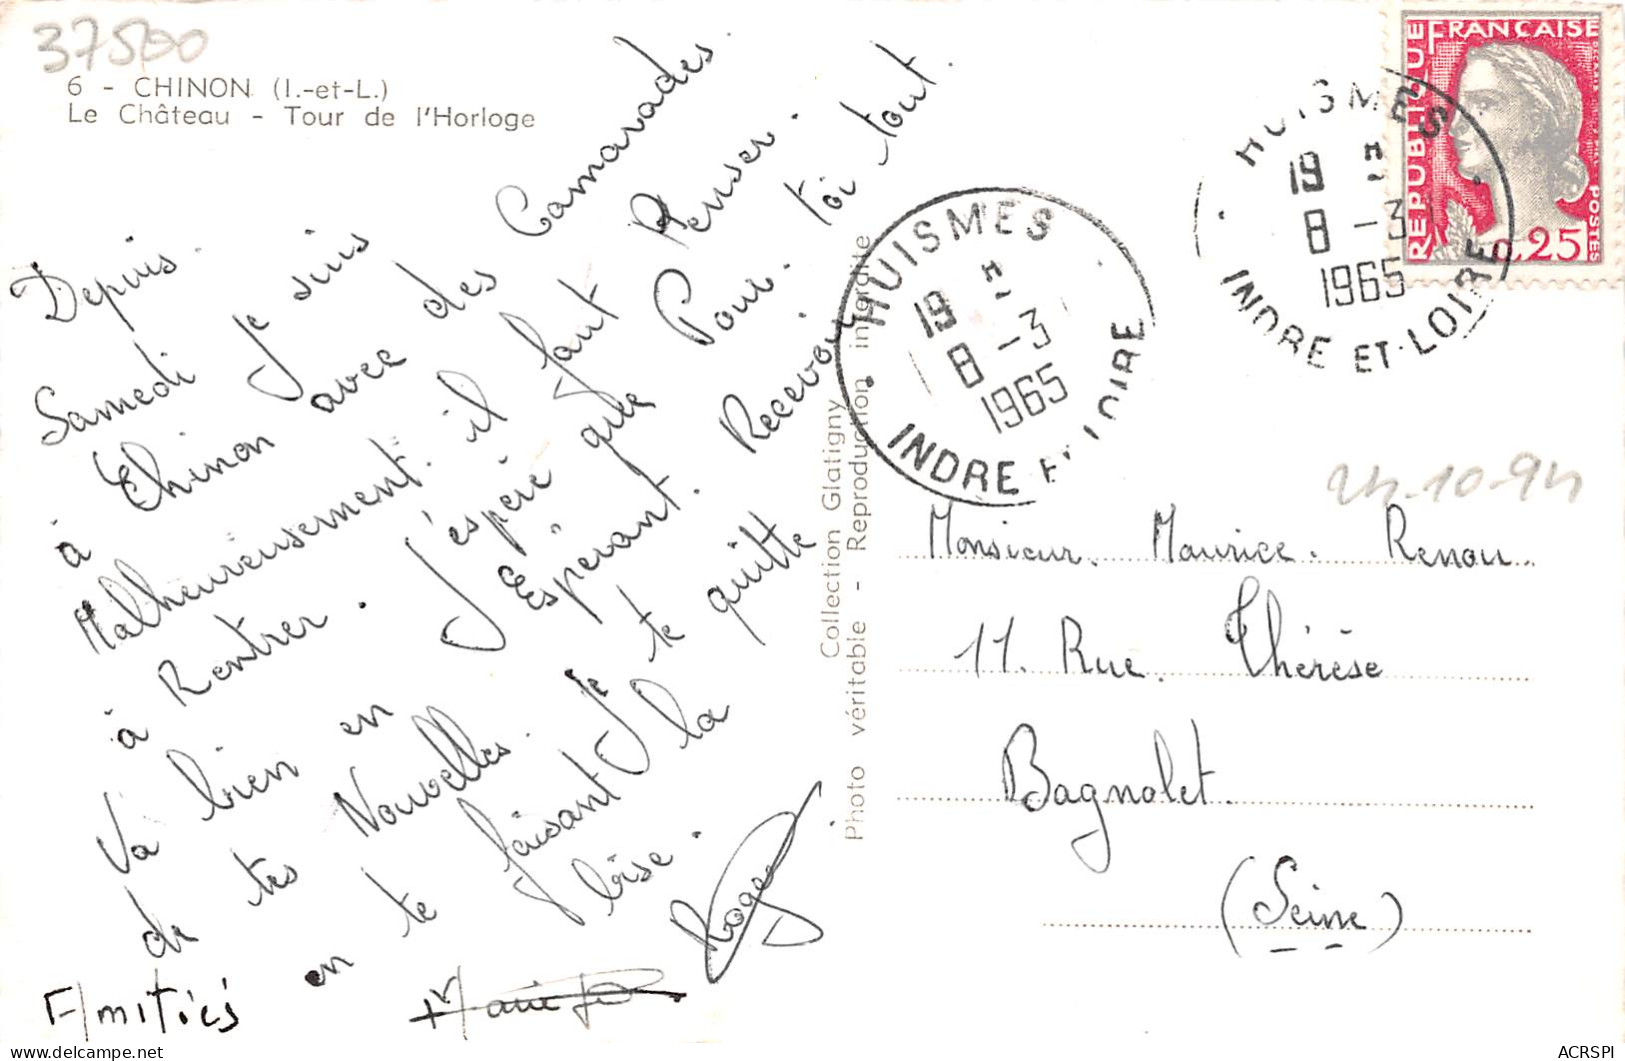 37500
6 - CHINON (I.-et-L.)
Le Château - Tour de l'Horloge
Depuis.
Samedi Je suis
à Chinon avec des Camarades
Malheureusement. il faut Penser.
à Rentrer. J'espère que Pour. toi tout.
Va bien en Espérant. Recevoir
de tes Nouvelles. Je te quitte
en te faisant la
bise.
Roger
Amitiés
Collection Glatigny
Photo véritable - Reproduction interdite
HUISMES
19 H
8 - 3
1965
INDRE ET LOIRE
HUISMES
19 H
8 - 3
1965
INDRE ET-LOIRE
REPUBLIQUE FRANCAISE
POSTES
0,25
24-10-94
Monsieur. Maurice. Renou.
11. Rue. Thérèse
Bagnolet.
(Seine)
ACRSPI